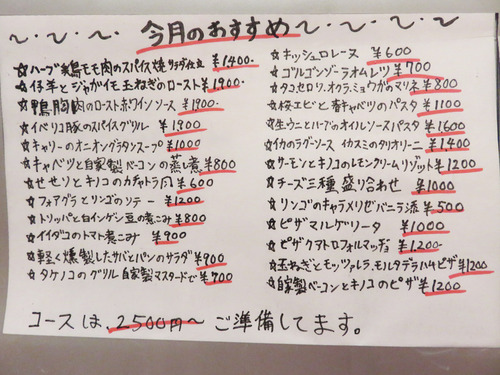 ～・～・～ 今月のおすすめ ～・～・～・～
☆ハーブ鶏モモ肉のスパイス焼 サラダ仕立 ¥1400-
☆仔羊とジャガイモ 玉ねぎのロースト ¥1900
☆鴨胸肉のロースト赤ワインソース ¥1900-
☆イベリコ豚のスパイスグリル ¥1900
☆キャリーのオニオングラタンスープ ¥1000
☆キャベツと自家製ベーコンの蒸し煮 ¥800
☆せせりとキノコのカチャトラ風 ¥600
☆フォアグラとリンゴのソテー ¥1200
☆トリッパと白インゲン豆の煮こみ ¥800
☆イイダコのトマト煮こみ ¥900
☆軽く燻製したサバとパンのサラダ ¥900
☆タケノコのグリル 自家製マスタードで ¥700
☆キッシュロレーヌ ¥600
☆ゴルゴンゾーラオムレツ ¥700
☆タコセロリ.オクラ.ミョウガのマリネ ¥800
☆桜エビと春キャベツのパスタ ¥1100
☆生ウニとハーブのオイルソースパスタ ¥1600
☆イカのラグーソース イカスミのタリオリーニ ¥1,400
☆サーモンとキノコのレモンクリームリゾット ¥1200
☆チーズ三種盛り合わせ ¥1000
☆リンゴのキャラメリゼ バニラ添 ¥500
☆ピザマルゲリータ ¥1000
☆ピザクアトロフォルマッジョ ¥1,200-
☆玉ねぎとモッツァレラ.モルタデラハムピザ ¥1200
☆自家製ベーコンとキノコのピザ ¥1200
コースは、2500円～ご準備してます。